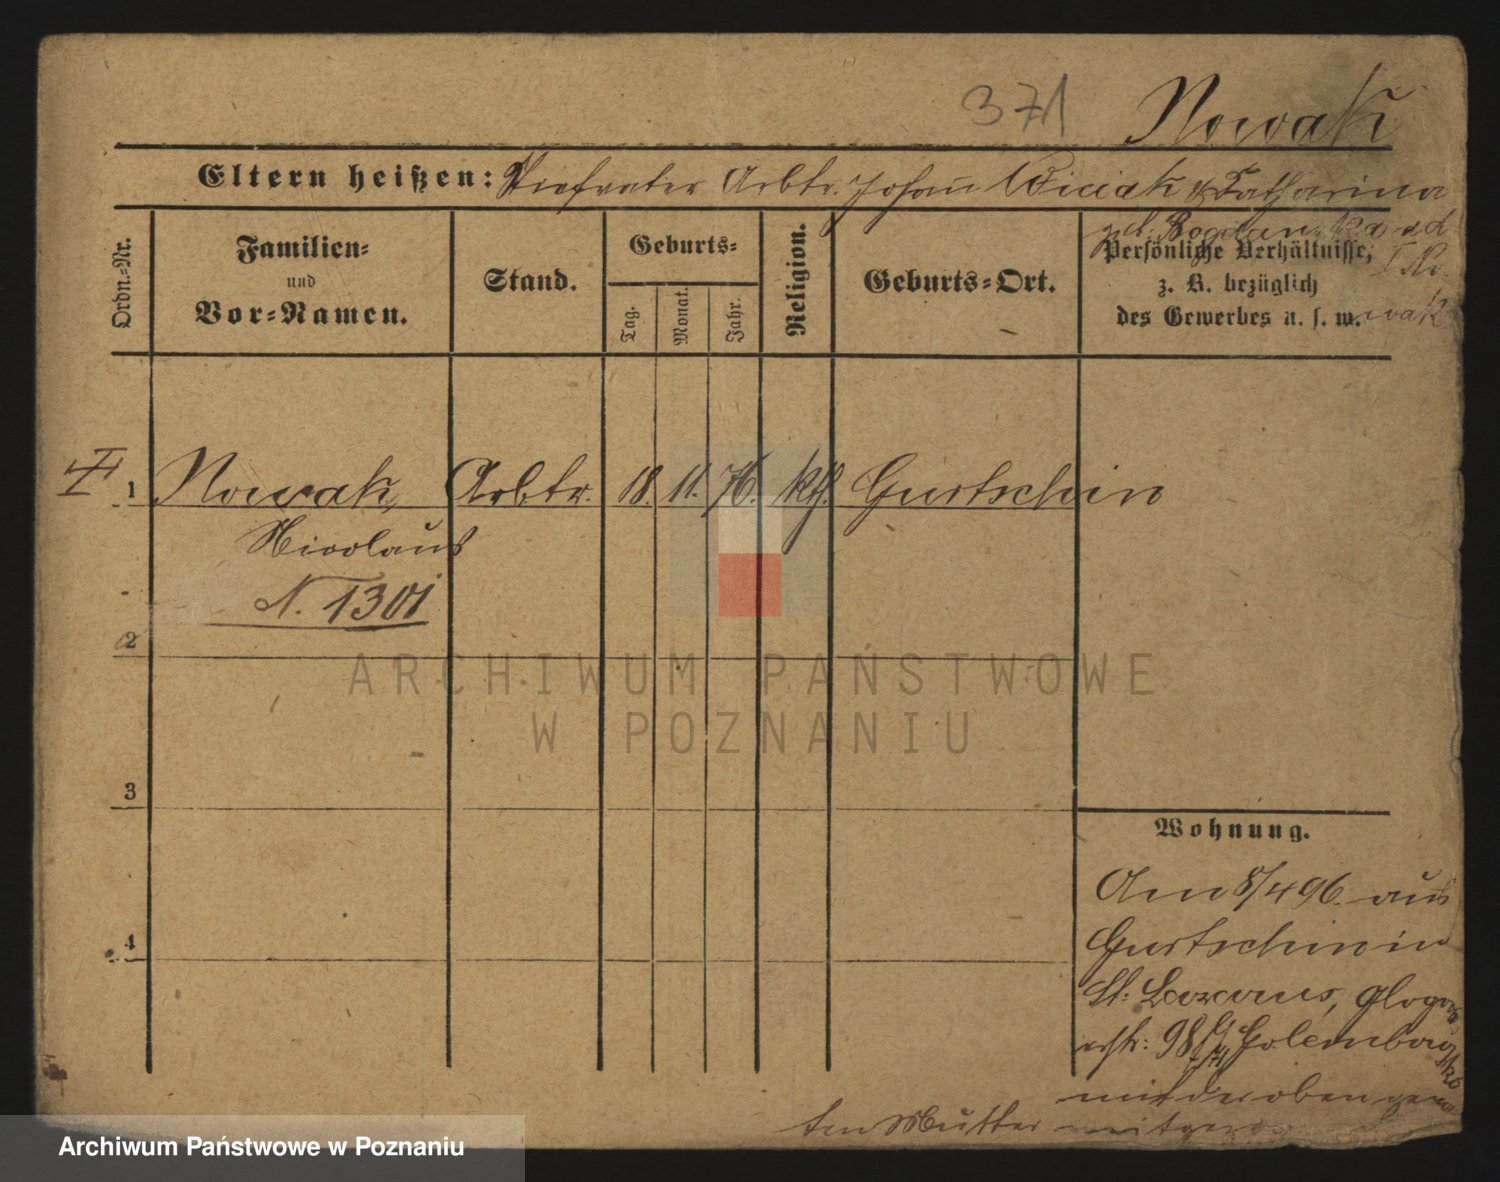 371 Nowak
Eltern heißen: Stiefvater Arbtr. Johann Wiciak & Katharina
geb. Bogdanska vd
I No-
wak
Ordn.-Nr.
Familien-
und
Vor-Namen.
Stand.
Geburts-
Tag.
Monat.
Jahr.
Religion.
Geburts-Ort.
Persönliche Verhältnisse,
z. B. bezüglich
des Gewerbes u. s. w.
1 Nowak, Arbtr. 18. 11. 76. kth. Gurtschin
Nicolaus
N. 1301
2
3
4
Wohnung.
Am 8/4 96. aus
Gurtschin in
St: Lazarus, Glogau-
erstr: 98 Golembowski
mit der oben genann-
ten Mutter
ARCHIWUM PAŃSTWOWE
W POZNANIU
Archiwum Państwowe w Poznaniu